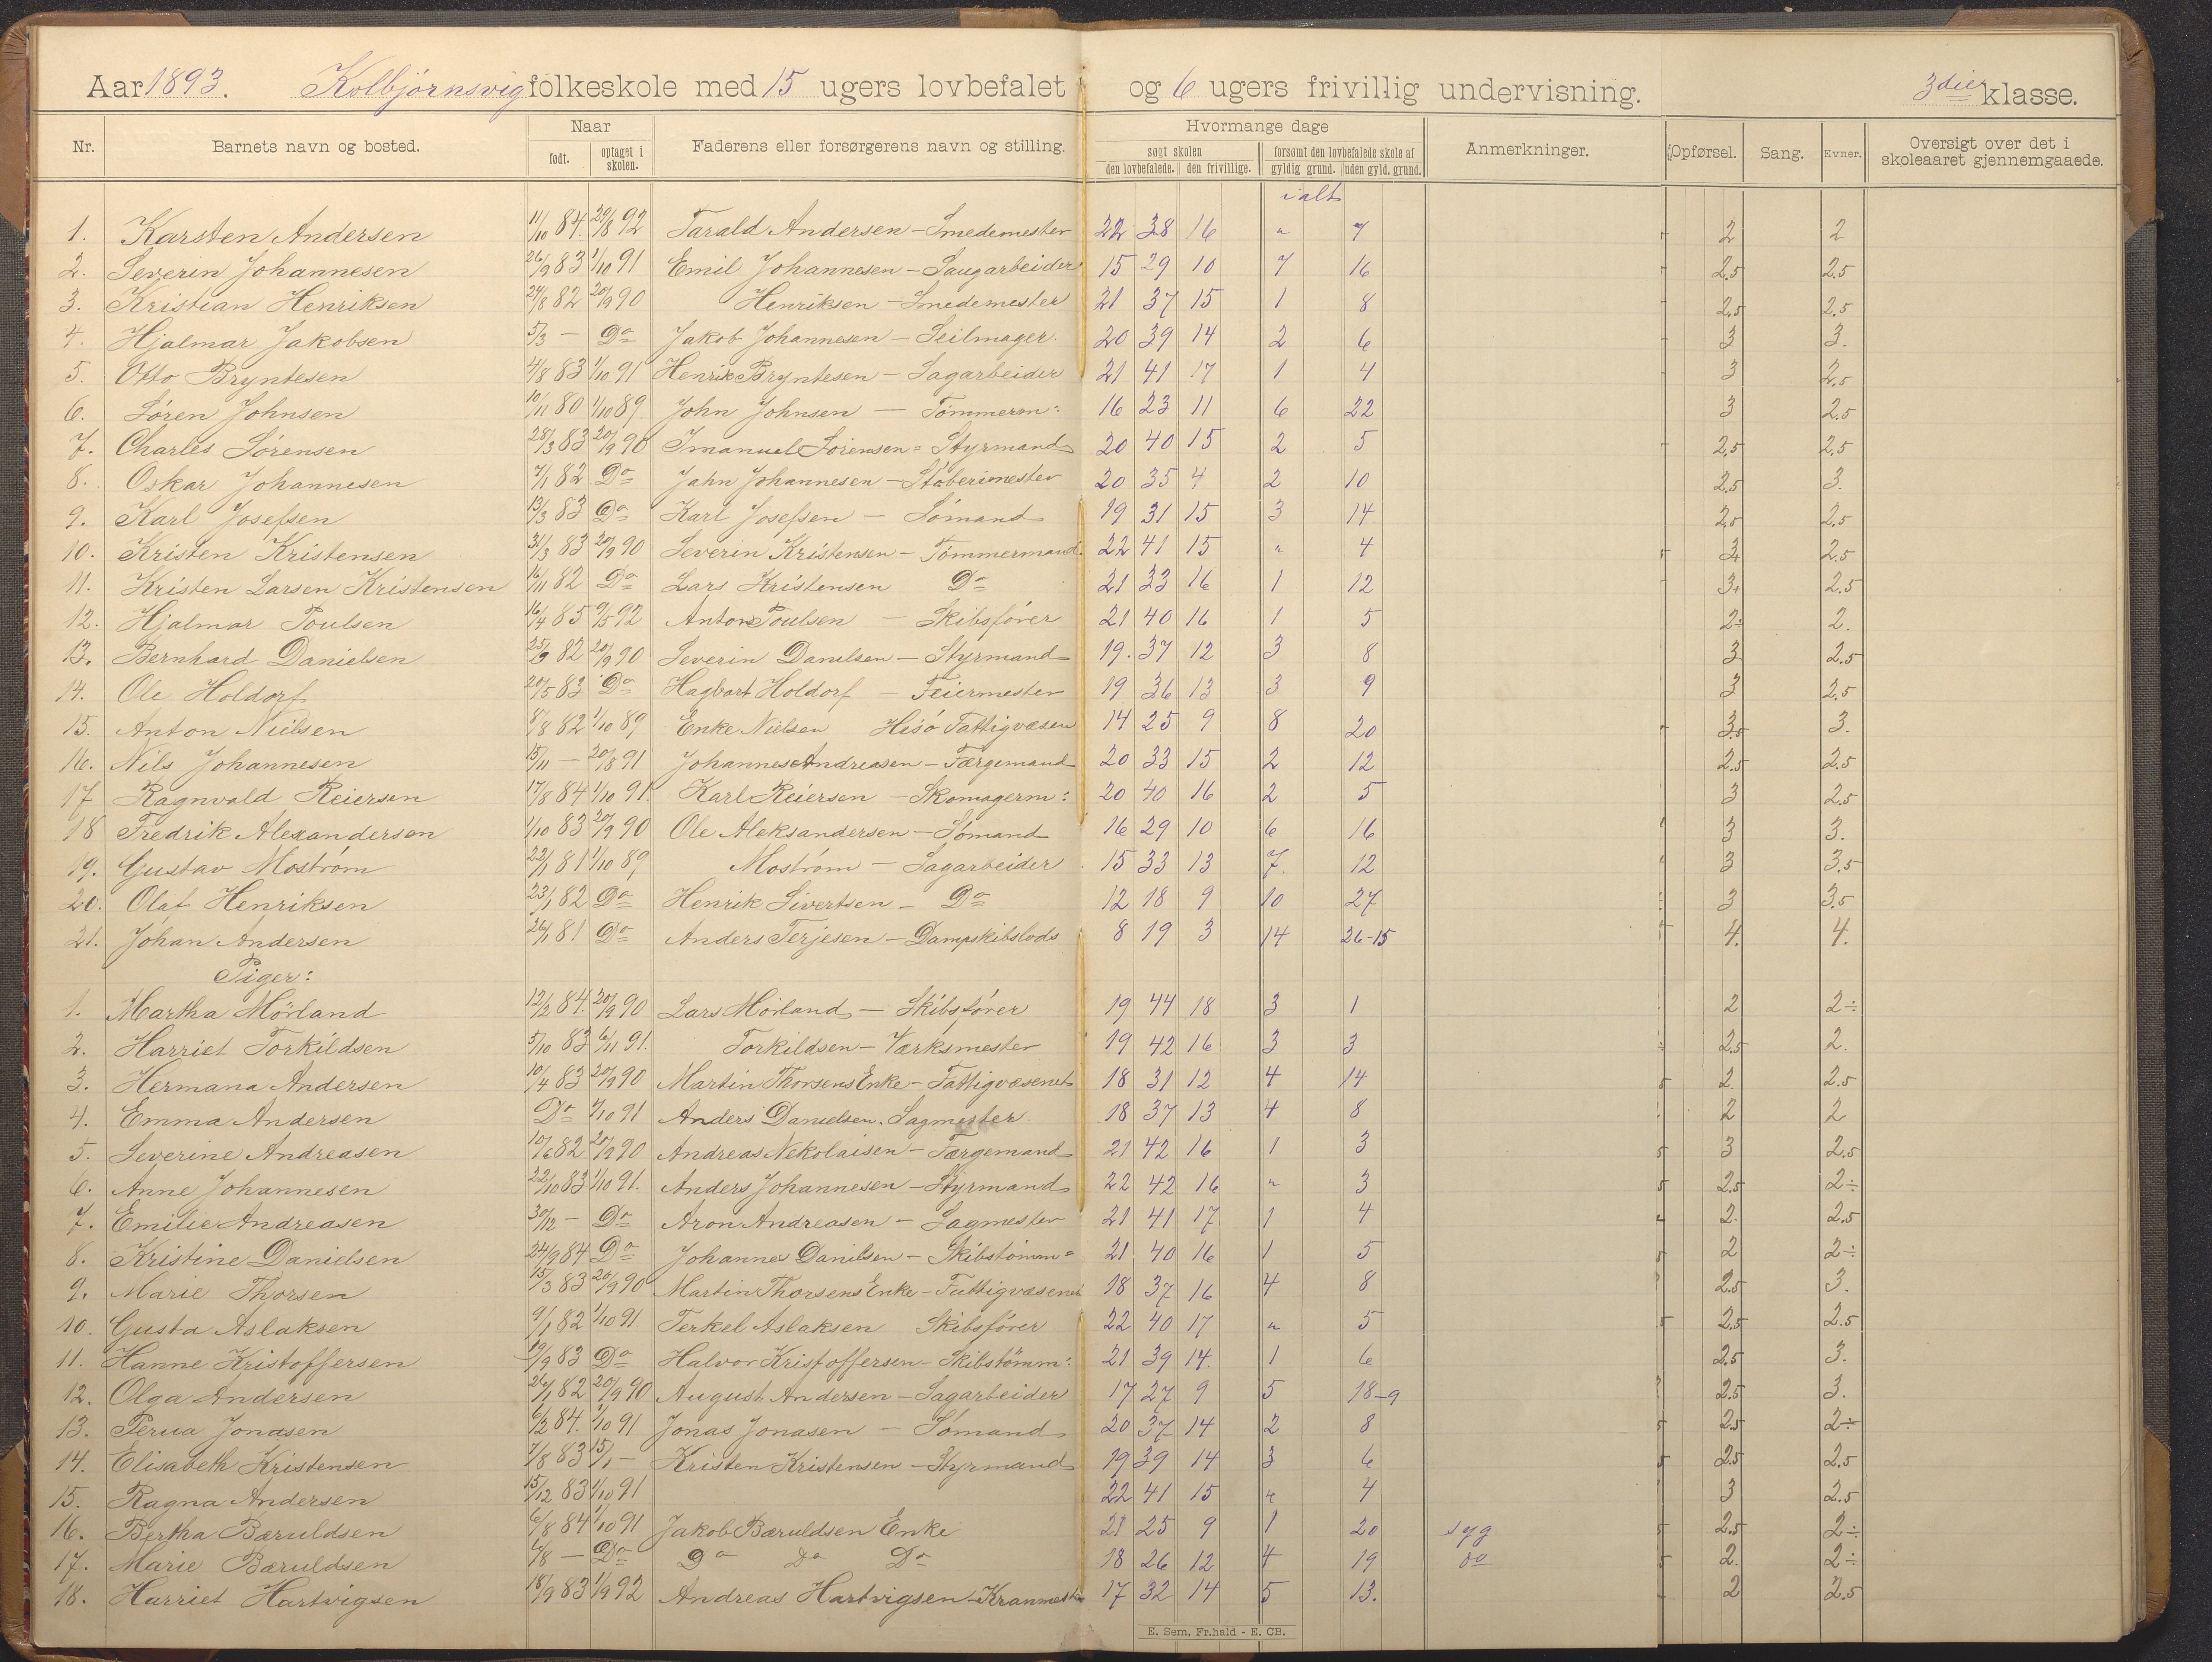 Aar 1893. Kolbjørnsvig folkeskole med 15 ugers lovbefalet og 6 ugers frivillig undervisning. 3die klasse.
Nr. Barnets navn og bosted. Naar født. optaget i skolen. Faderens eller forsørgerens navn og stilling. Hvormange dage søgt skolen den lovbefalede. den frivillige. forsømt den lovbefalede skole af gyldig grund. uden gyld. grund. Anmerkninger. Opførsel. Sang. Evner. Oversigt over det i skoleaaret gjennemgaaede.
ialt
1. Karsten Andersen 11/10 84. 29/8 92 Tarald Andersen - Smedemester 22 38 16 " 7 2 2
2. Severin Johannesen 26/9 83 1/10 91 Emil Johannesen - Saugarbeider 15 29 10 7 16 2,5 2,5
3. Kristian Henriksen 24/8 82 20/9 90 Henriksen - Smedemester 21 37 15 1 8 2,5 2,5
4. Hjalmar Jakobsen 5/3 - Do Jakob Johannesen - Seilmager. 20 39 14 2 6 3 3.
5. Otto Bryntesen 4/8 83 1/10 91 Henrik Bryntesen - Sagarbeider 21 41 17 1 4 3 2,5
6. Søren Johnsen 10/11 80 1/10 89. John Johnsen - Tømmerm: 16 23 11 6 22 3 2,5
7. Charles Sørensen 28/3 83 20/9 90 Imanuel Sørensen - Styrmand 20 40 15 2 5 2,5 2,5
8. Oskar Johannesen 7/1 82 Do Jahn Johannesen - Støberimester 20 35 4 2 10 2,5 3.
9. Karl Josefsen 13/3 83 Do Karl Josefsen - Sømand 19 31 15 3 14 2,5 2,5
10. Kristen Kristensen 31/3 83 20/9 90 Severin Kristensen - Tømmermand 22 41 15 " 4 3 2,5
11. Kristen Larsen Kristensen 16/11 82 Do Lars Kristensen Do 21 33 16 1 12 3+ 2.5
12. Hjalmar Poulsen 16/4 85 9/5 92 Anton Poulsen - Skibsfører 21 40 16 1 5 2÷ 2.
13. Bernhard Danielsen 25/9 82 20/9 90 Severin Danilsen - Styrmand 19. 37 12 3 8 3 2,5
14. Ole Holdorf 20/5 83 Do Hagbart Holdorf - Feiermester 19 36 13 3 9 3 2,5
15. Anton Nielsen 8/8 82 1/10 89 Enke Nielsen Hisø Fattigvæsen 14 25 9 8 20 3,5 3.
16. Nils Johannesen 15/11 - 20/8 91 Johannes Andreasen - Færgemand 20 33 15 2 12 2,5 2,5
17 Ragnvald Reiersen 17/8 84 1/10 91. Karl Reiersen - Skomagerm: 20 40 16 2 5 3 2,5
18 Fredrik Alexandersen 1/10 83 20/9 90 Ole Aleksandersen - Sømand 16 29 10 6 16 3 3.
19. Gustav Mostrøm 22/1 81 1/10 89 Mostrøm - Sagarbeider 15 33 13 7. 12 3 3,5
20. Olaf Henriksen 23/1 82 Do Henrik Sivertsen - Do 12 18 9 10 27 3 3,5
21. Johan Andersen 26/1 81 Do Anders Terjesen - Dampskibslods 8 19 3 14 26-15 4. 4.
Piger:
1. Martha Mørland 12/2 84. 20/9 90 Lars Mørland - Skibsfører 19 44 18 3 1 2 2÷
2. Harriet Torkildsen 5/10 83 6/11 91. Torkildsen - Værksmester 19 42 16 3 3 2,5 2.
3. Hermana Andersen 10/4 83 20/9 90 Martin Thorsens Enke - Fattigvæsenet 18 31 12 4 14 2. 2.5
4. Emma Andersen Do 1/10 91 Anders Danielsen. Sagmester. 18 37 13 4 8 2 2
5. Severine Andreasen 10/6 82 20/9 90 Andreas Nekolaisen - Færgemand 21 42 16 1 3 3 2,5
6. Anne Johannesen 22/10 83 1/10 91. Anders Johannesen - Styrmand 22 42 16 " 3 2,5 2÷
7. Emilie Andreasen 30/12 - Do Aron Andreasen - Sagmester 21 41 17 1 4 2. 2.5
8. Kristine Danielsen 24/9 84 Do Johannes Danilsen - Skibstømm= 21 40 16 1 5 2 2÷
9. Marie Thorsen 15/3 83 20/9 90 Martin Thorsens Enke - Fattigvæsenet 18 37 16 4 8 2.5 3.
10. Gusta Aslaksen 9/1 82 1/10 91 Terkel Aslaksen Skibsfører 22 40 17 " 5 2,5 2.5
11. Hanne Kristoffersen 19/9 83 Do Halvor Kristoffersen - Skibstømm: 21 39 14. 1 6 2,5 3.
12. Olga Andersen 26/1 82 20/9 90 August Andersen - Sagarbeider 17 27 9 5 18-9 2.5 3.
13. Perua Jonasen 6/2 84. 1/10 91 Jonas Jonasen - Sømand 20 37 14 2 8 2,5 2÷
14. Elisabeth Kristensen 7/8 83 15/1 - Kristen Kristensen - Styrmand 19 39 14 3 6 2,5 2.5
15. Ragna Andersen 15/12 83 1/10 91 22 41 15 " 4 3 2.5
16. Bertha Bæruldsen 6/8 84 1/10 91 Jakob Bæruldsen Enke 21 25 9 1 20 syg 2,5 2÷
17. Marie Bæruldsen 6/8 - Do Do Do Do 18 26 12 4 19 do 2. 2÷
18. Harriet Hartvigsen 18/9 83 1/9 92 Andreas Hartvigsen - Kranmest 17 32 14 5 13. 2 2.5
E. Sem, Fr.hald - E. CB.